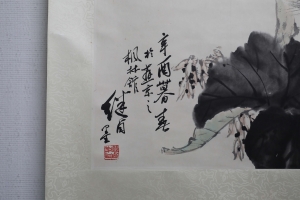 辛酉暮春
於燕京之
枫林馆
继卣
墨